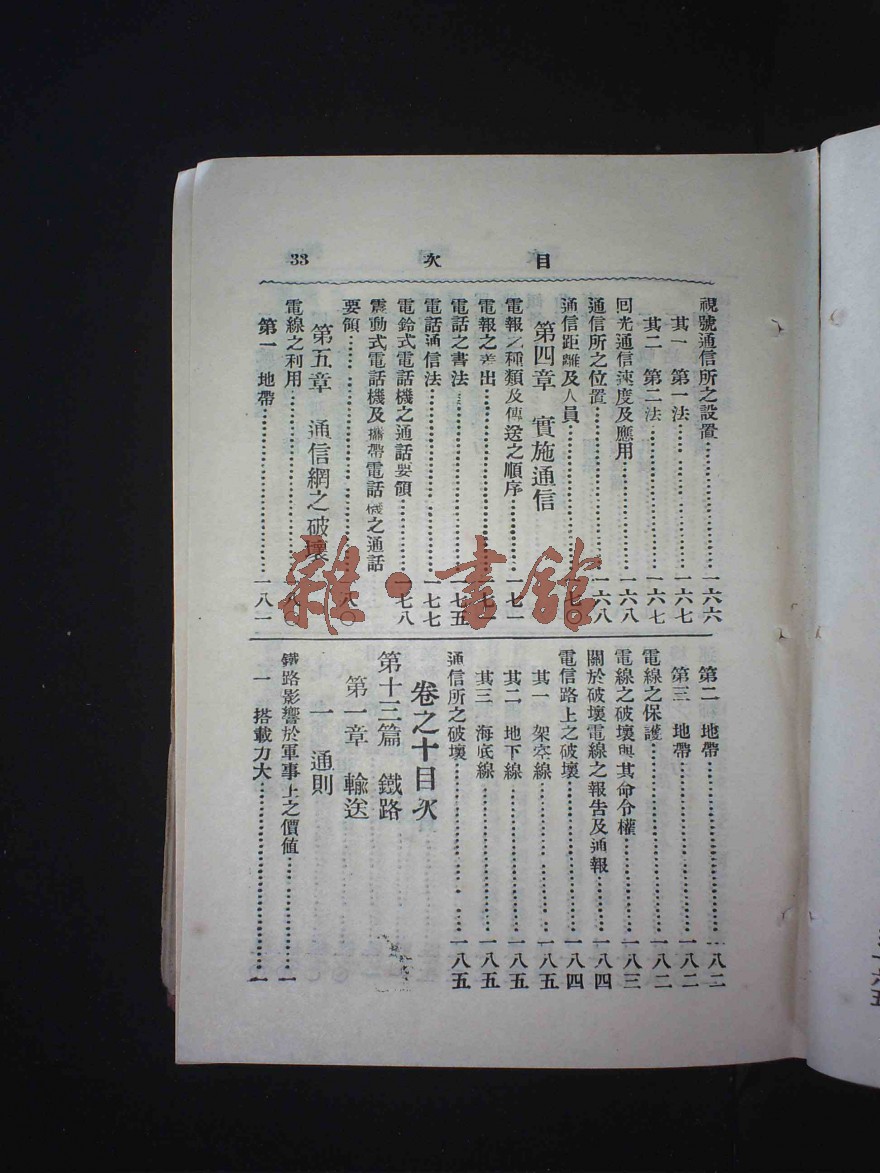 目次
33
視號通信所之設置……一六六
其一 第一法……一六七
其二 第二法……一六七
回光通信速度及應用……一六八
通信所之位置……一六八
通信距離及人員……七〇
第四章 實施通信
電報之種類及傳送之順序……一七一
電報之差出……一七一
電話之書法……七五
電話通信法……一七七
電鈴式電話機之通話要領……一七八
震動式電話機及攜帶電話機之通話
要領……八〇
第五章 通信網之破壞
電線之利用……一八〇
第一 地帶……一八一
第二 地帶……一八二
第三 地帶……一八二
電線之保護……一八二
電線之破壞與其命令權……一八三
關於破壞電線之報告及通報……一八四
電信路上之破壞……一八四
其一 架空線……一八五
其二 地下線……一八五
其三 海底線……一八五
通信所之破壞……一八五
卷之十目次
第十三篇 鐵路
第一章 輸送
一 通則
鐵路影響於軍事上之價值……一
一 搭載力大……一
雜·書館